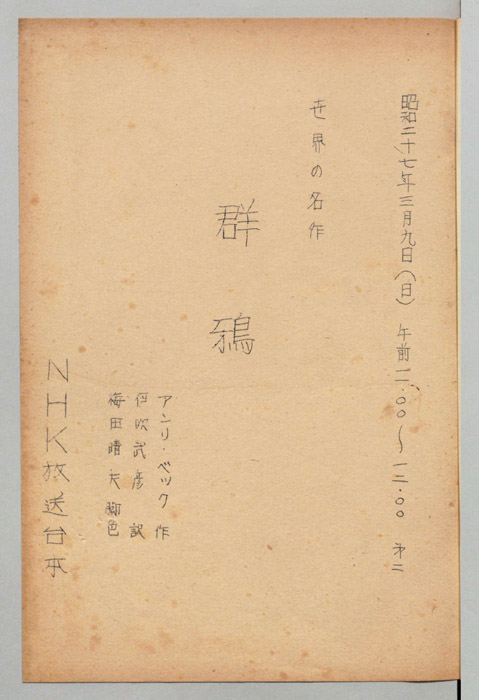 昭和二十七年三月九日(日) 午前一一・〇〇~一二・〇〇 第二
世界の名作
群鴉
アンリ・ベツク 作
伊吹武彦 訳
梅田晴夫 脚色
NHK放送台本